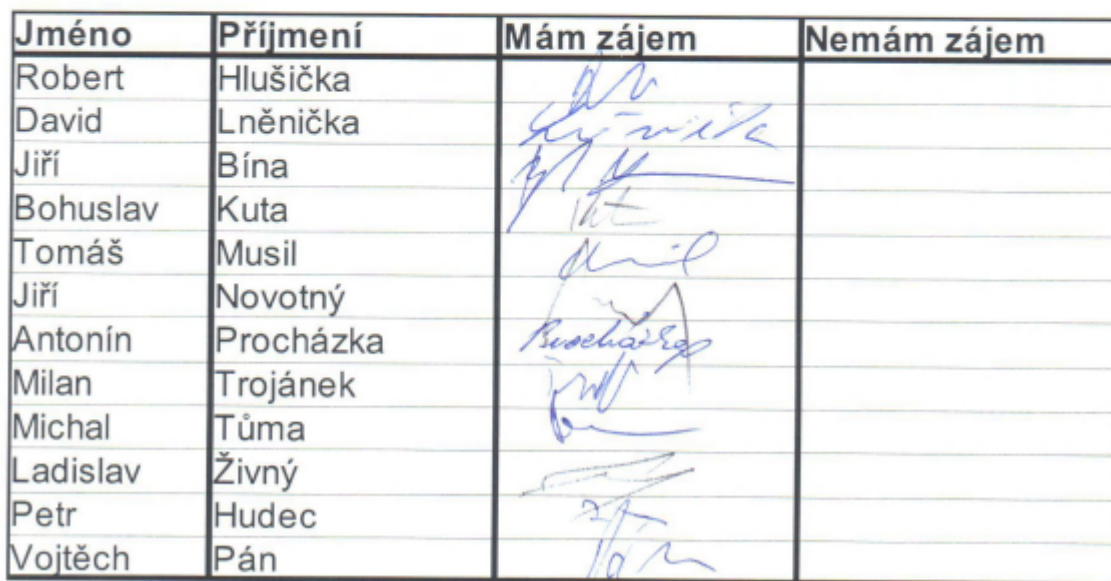 Jméno Příjmení Mám zájem Nemám zájem
Robert Hlušička
David Lněnička
Jiří Bína
Bohuslav Kuta
Tomáš Musil
Jiří Novotný
Antonín Procházka Procházka
Milan Trojánek
Michal Tůma
Ladislav Živný
Petr Hudec
Vojtěch Pán